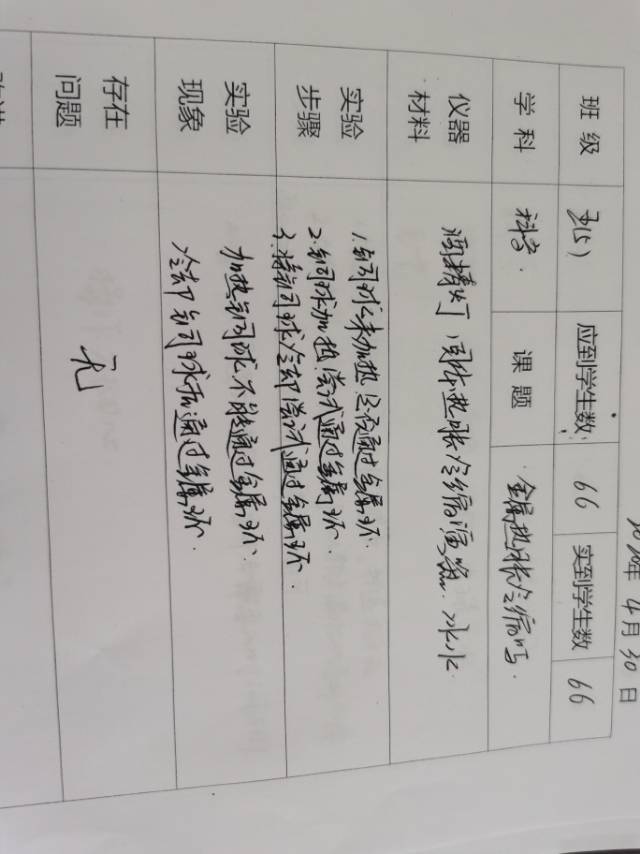 4月30日
班级 五(5) 应到学生数: 66 实到学生数 66
学科 科学. 课题 金属热胀冷缩吗.
仪器材料 酒精灯 固体热胀冷缩演器. 冰水
实验步骤 1.铜球未加热是否通过金属环.
2.铜球加热,尝试通过金属环.
3.将铜球冷却尝试通过金属环.
实验现象 加热铜球不能通过金属环.
冷却铜球后通过金属环.
存在问题 无